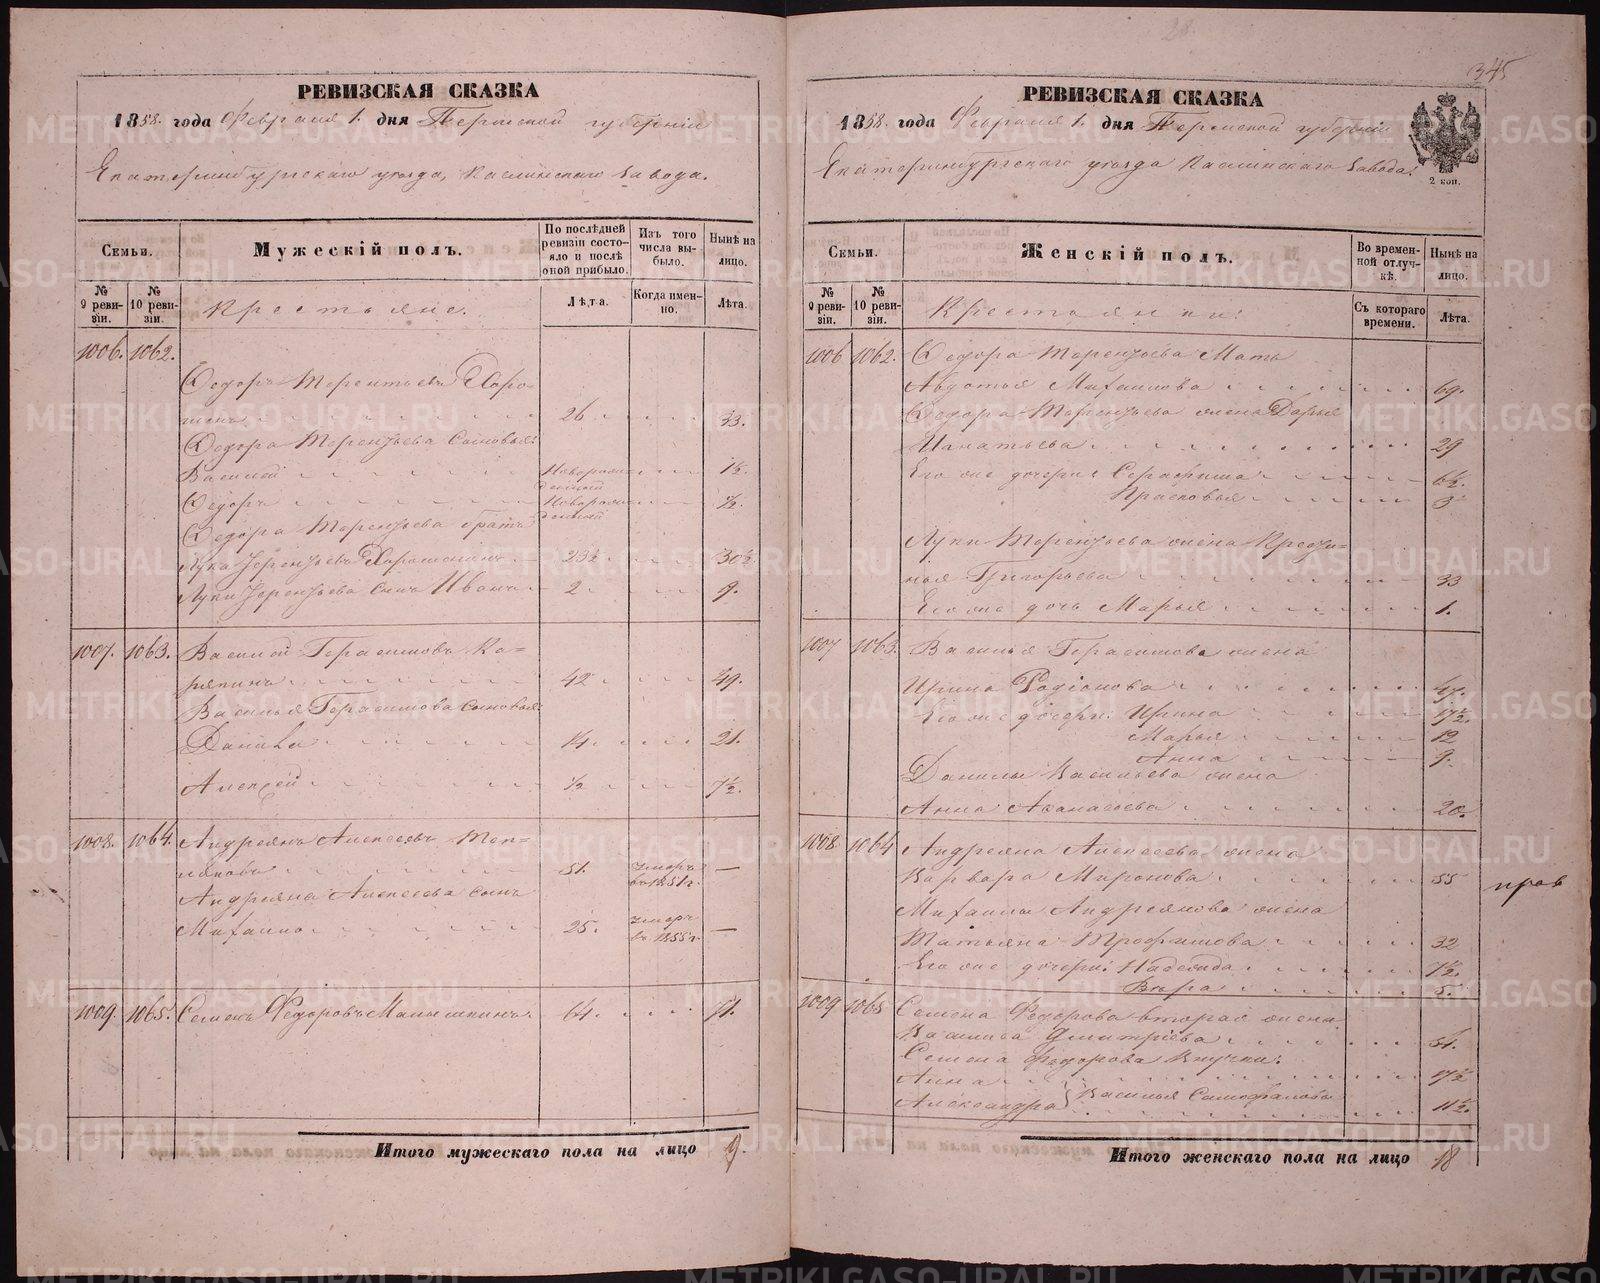 345
РЕВИЗСКАЯ СКАЗКА
1858. года Февраля 1. дня Пермской губерніи
Екатеринбургскаго уезда, Каслинскаго Завода.
Семьи.
Мужескій полъ.
По послѣдней ревизіи состояло и послѣ оной прибыло.
Изъ того числа выбыло.
Нынѣ на лицо.
№ 9 ревизіи.
№ 10 ревизіи.
Крестьяне.
Лѣта.
Когда именно.
Лѣта.
1006. 1062.
Федоръ Терентьевъ Хоро-
26 33.
Федора Терентьева Сыновья:
Василий Новорожденный 1½
Федоръ Новорожденный ½.
Федора Терентьева братъ
Лука Терентьевъ 23½ 30½
Луки Терентьева сынъ Иванъ 2 9.
1007. 1063. Василий Герасимовъ Ко-
42 49.
Василья Герасимова сыновья:
Данила 14. 21.
Алексей ½ 7½.
1008. 1064. Андреянъ Алексеевъ Теп-
ляковъ 51. умеръ въ 1851г. —
Андреяна Алексеева сынъ
Михаило 25. умеръ въ 1855г. —
1009. 1065. Семенъ Федоровъ Малышкинъ 64. 71.
Итого мужескаго пола на лицо 9.
РЕВИЗСКАЯ СКАЗКА
1858. года Февраля 1. дня Пермской губерніи
Екатеринбургскаго уезда Каслинскаго Завода.
2 коп.
Семьи.
Женскій полъ.
Во временной отлучкѣ.
Нынѣ на лицо.
№ 9 ревизіи.
№ 10 ревизіи.
Крестьянки:
Съ котораго времени.
Лѣта.
1006 1062. Федора Терентьева Мать
Авдотья Михаилова 69.
Федора Терентьева жена Дарья
Игнатьева 29
Его же дочери: Серафима 6½.
Прасковья 3
Луки Терентьева жена
Григорьева 33
Его же дочь Марья 1.
1007 1063. Василья Герасимова жена
Ирина Родіонова 47.
Его же дочери: Ирина 17½.
Марья 12
Анна 9.
Данилы Васильева жена
Анна Афанасьева 20.
1008 1064 Андреяна Алексеева жена
Варвара Миронова 55
Михаилы Андреянова жена
Татьяна Трофимова 32
Его же дочери: Надежда 7½.
Вѣра 5.
1009 1065 Семена Федорова вторая жена
Василиса Дмитріева 51.
Семена Федорова Внучки:
Анна 17½
Александра } Василья 11½.
Итого женскаго пола на лицо 18
METRIKI.GASO-URAL.RU